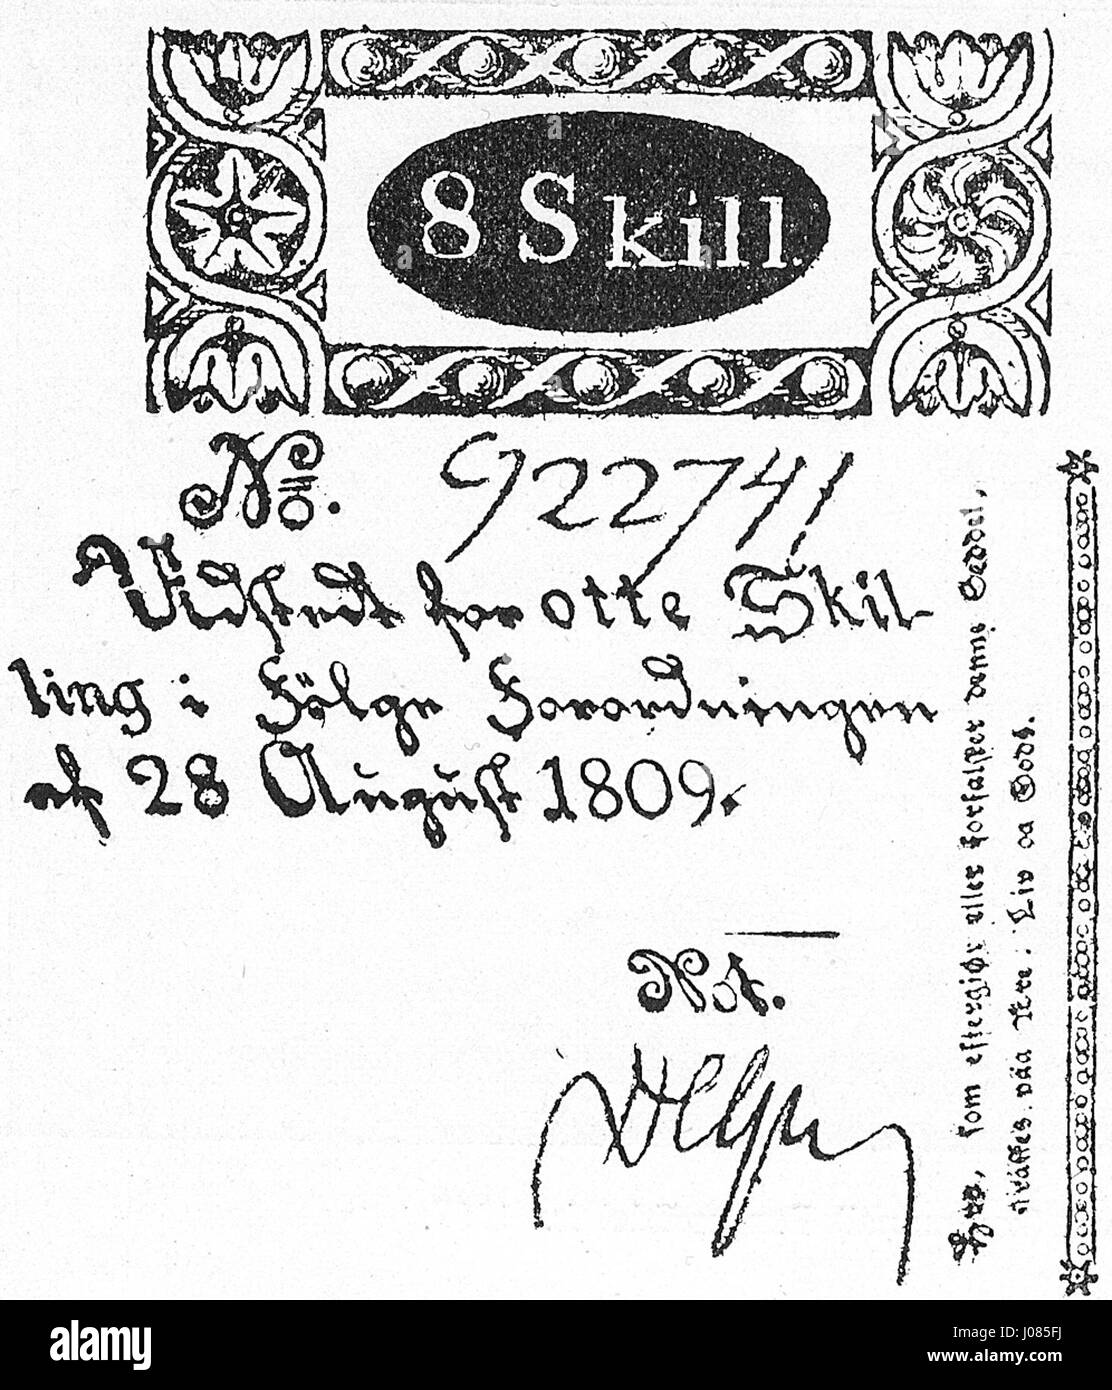 8 Skill.
No. 922741
Udstedt for otte Skil-
ling i Fölge Forordningen
af 28 August 1809.
Not.
Hvo, som eftergiør eller forfalsker denne Seddel,
straffes paa Ære, Liv og Gods.
a
alamy
Image ID: J085FJ
www.alamy.com